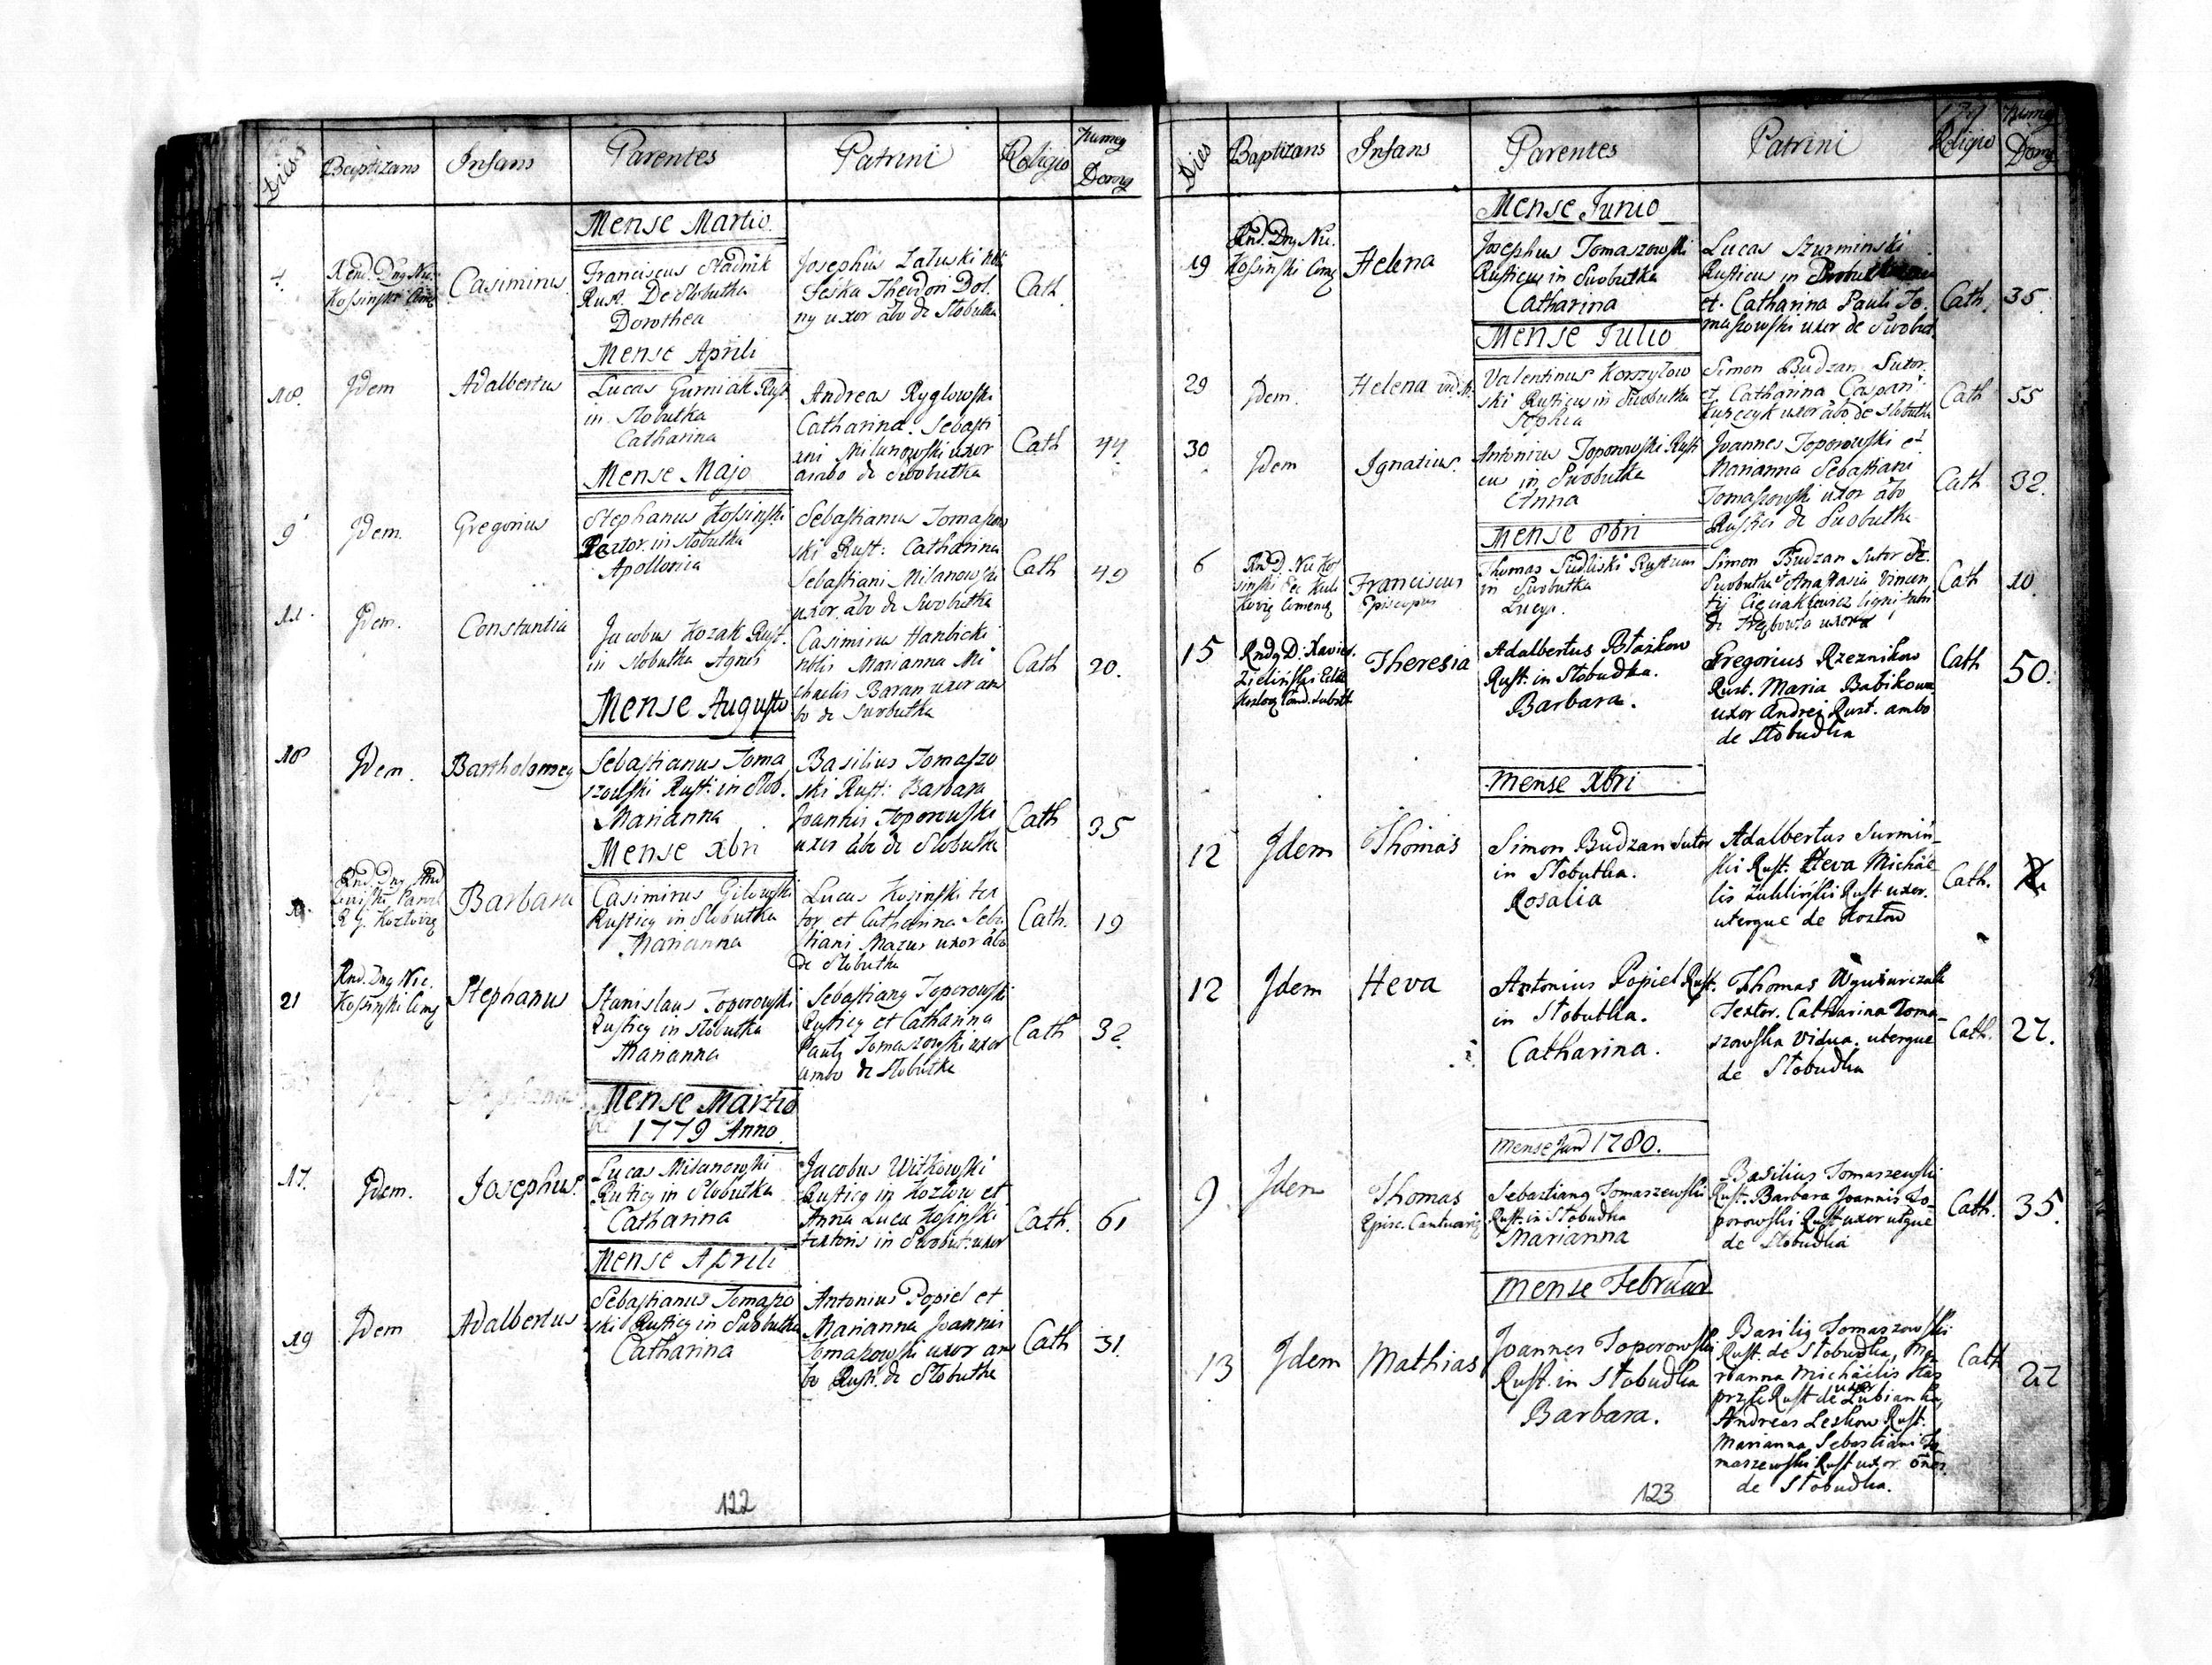 Dies Baptizans Infans Parentes Patrini Religio Numeq Domq
Mense Martio.
4. Rend. Dnq Nic.
Kossinski Comq
Casimirus
Franciscus Stadnik
Rust. De Slobutka
Dorothea
Josephus Zaluski
Theodori Dol.
ny uxor abo de Slobutka
Cath
Mense Aprili
18. Idem Adalbertus
Lucas Gurniak Rust
in Slobutka
Catharina
Andreas Ryglowski
Catharina Sebasti
ani Milanowski uxor
ambo de Swobutka
Cath 44
Mense Majo
9 Idem. Gregorius
Stephanus Kossinski
Textor. in Slobutka
Apollonia
Sebastianus Tomaszow
ski Rust: Catharina
Sebastiani Milanowski
uxor abo de Swobutka
Cath 49
11. Idem. Constantia
Jacobus Kozak Rust.
in Slobutka Agnes
Casimirus Hanbicki
Nblis Marianna Mi
chaelis Baran uxor am
bo de Swobutka
Cath 20.
Mense Augusto
18 Idem. Bartholomeq
Sebastianus Toma
szowski Rust: in Slob.
Marianna
Basilius Tomaszo
ski Rust: Barbara
Joannis Toporowski
uxor abo de Slobutka
Cath 35
Mense Xbri
Rnd. Dnq
Kozlovieq
Barbara
Casimirus Gilowski
Rusticq in Slobutka
Marianna
Lucas Kosinski tex
tor et Catharina Seba
stiani Mazur uxor abo
de Slobutka
Cath. 19
21 Rnd. Dnq Nic.
Kossinski Comq
Stephanus
Stanislaus Toporowski
Rusticq in Slobutka
Marianna
Sebastianq Toporowski
Rusticq et Catharina
Pauli Tomaszowski uxor
ambo de Slobutka
Cath 32
Mense Martio
1779 Anno.
17. Idem. Josephus.
Lucas Milanowski
Rusticq in Slobutka
Catharina
Jacobus Witkowski
Rusticq in Kozlow et
Anna Luca Kosinski
textoris in Swobut: uxor
Cath. 61
Mense Aprili
19 Idem Adalbertus
Sebastianus Tomaszo
ski Rusticq in Swobutka
Catharina
Antonius Popiel et
Marianna Joannis
Tomaszowski uxor am
bo Rust. de Slobutka
Cath 31.
122
Dies Baptizans Infans Parentes Patrini Religio Numeq Domq
Mense Junio
19 Rnd. Dnq Nic.
Kossinski Comq
Helena
Josephus Tomaszowski
Rusticus in Swobutka
Catharina
Lucas Szurminski
Rusticus in
et Catharina Pauli To,
maszowski uxor de Swobut.
Cath. 35
Mense Julio
29 Idem. Helena
Valentinus Korszylow
ski Rusticus in Swobutka
Sophia
Simon Budzan Sutor.
et Catharina Caspari
uxor abo de Slobutka
Cath 55
30 Idem Ignatius.
Antonius Toporowski Rusti
cus in Swobutka
Anna
Joannes Toporowski et
Marianna Sebastiani
Tomaszowski uxor abo
Rustici de Swobutka
Cath 32.
Mense 8bri
6 Rnd D. Nic Kos
sinski
Comenq
Franciscus
Episcopus
Thomas Sudliski Rusticus
in Swobutka
Lucya.
Simon Budzan Sutor de
Swobutka et Anastasia Vincen
tij ligni fabri
de uxor
Cath 10.
15 Rndq D. Xavier.
Zielinski
Theresia
Adalbertus Blazkow
Rust. in Slobudka.
Barbara.
Gregorius Rzeznikow
Rust. Maria Babikowa
uxor Andrei Rust. ambo
de Slobudka
Cath 50.
Mense Xbri
12 Idem Thomas
Simon Budzan Sutor
in Slobutka.
Rosalia
Adalbertus Surmin-
ski Rust. Heva Michae
lis Zublinski Rust uxor.
uterque de Kozlow
Cath.
12 Idem Heva
Antonius Popiel Rust.
in Slobutka.
Catharina.
Thomas
Textor. Catharina Toma-
szowska Vidua. uterque
de Slobudka
Cath. 27.
Mense Jan 1780.
9 Idem Thomas
Episc. Cantuariq
Sebastianq Tomaszewski
Rust. in Slobudka
Marianna
Basilius Tomaszewski
Rust. Barbara Joannis To-
porowski Rust uxor utque
de Slobudka
Cath. 35.
Mense Februar
13 Idem Mathias
Joannes Toporowski
Rust. in Slobudka
Barbara.
Basiliq Tomaszowski
Rust. de Slobudka, Ma
rianna Michaelis Kas
przk Rust uxor de Lubianka,
Andreas Leskow Rust.
Marianna Sebastiani To
maszewski Rust uxor. omes
de Slobudka.
Cath 27
123